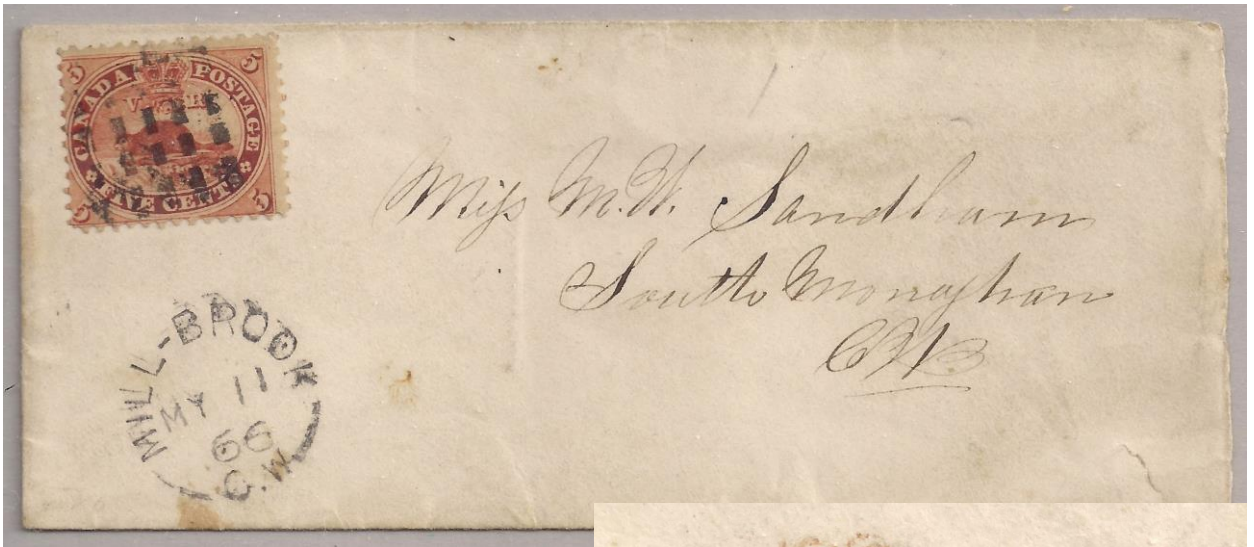 5 CANADA POSTAGE 5
V R
5 FIVE CENTS 5
Miss M. W. Sandham
South Monaghan
C.W.
MILL-BROOK
MY 11
66
C.W.